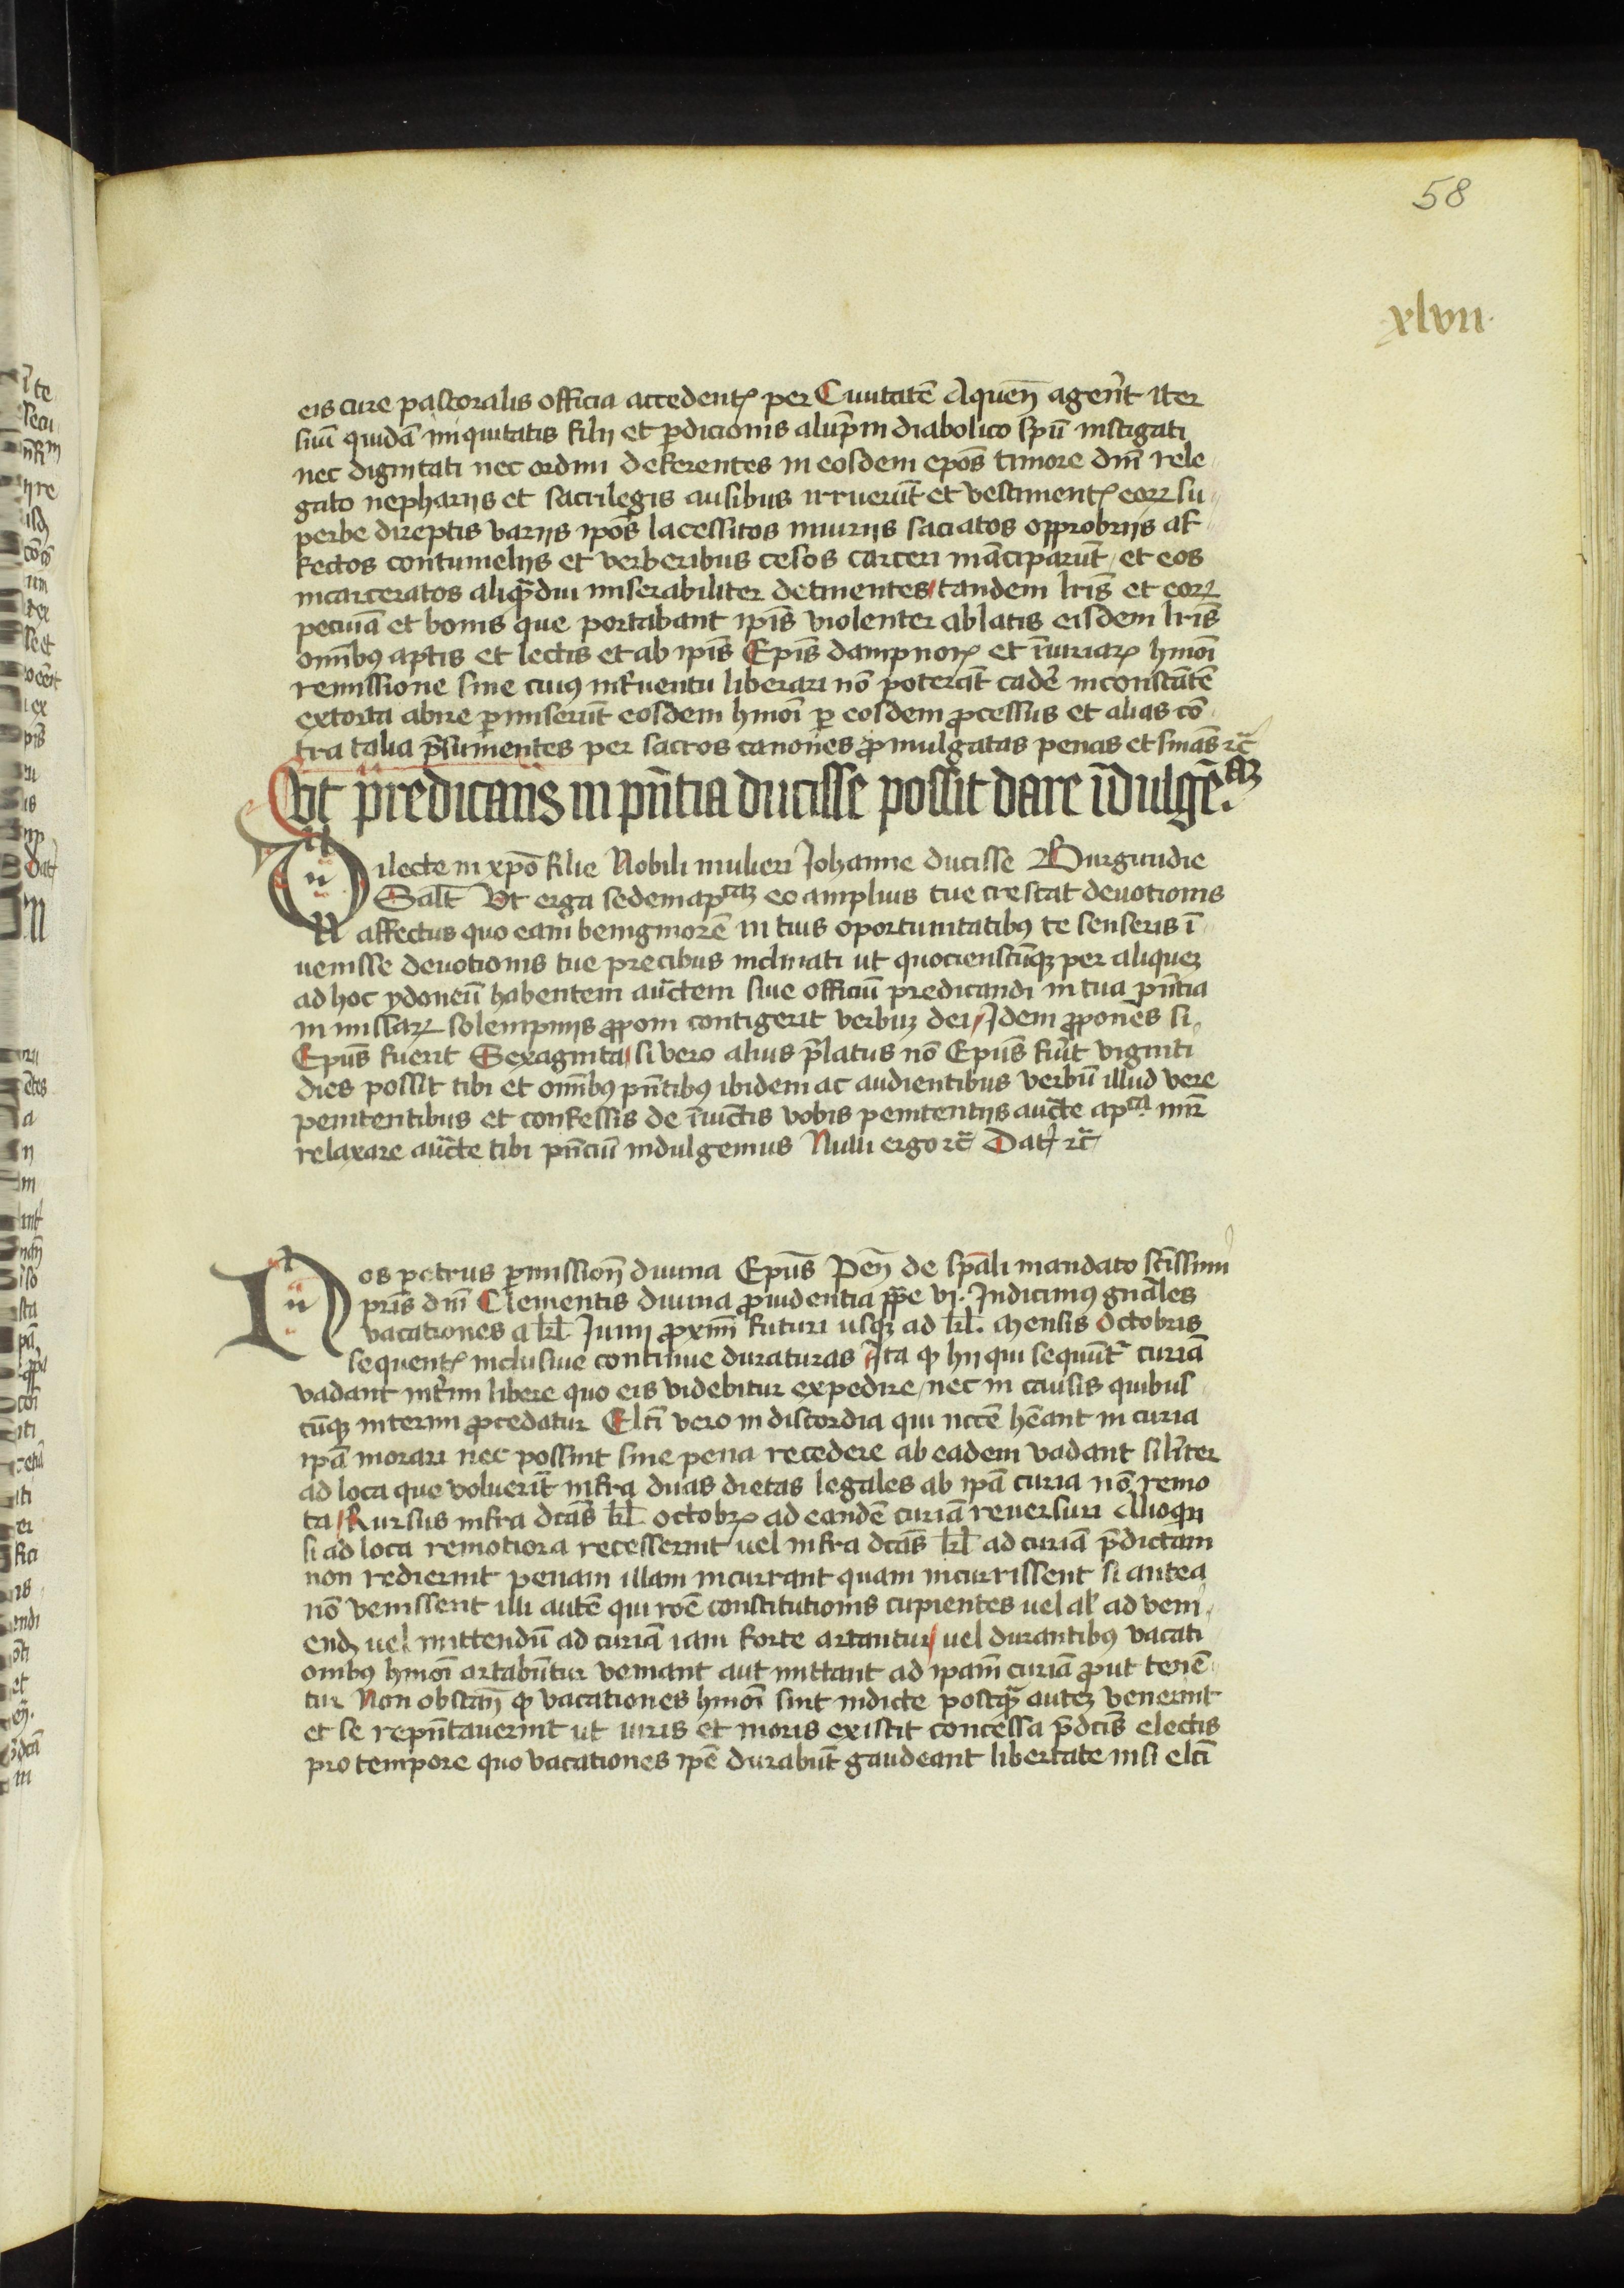 58
xlvii
eis cure pastoralis officia accedent᷒ per Ciuitatē Aqueñ agerēt iter
suū quidā iniquitatis filij et ꝑdicionis alūpni diabolico spū instigati
nec dignitati nec ordini deferentes in eosdem epōs timore dnī rele
gato nepharijs et sacrilegis ausibus irruerūt et vestiment᷒ eoꝝ su
perbe direptis varijs ip̄os lacessitos iniurijs saciatos opprobrijs af
fectos contumelijs et verberibus cesos carceri mācipārūt et eos
incarceratos aliqᷓdiu miserabiliter detinentes tandem lr̄is et eoꝝ
pecuīa et bonis que portabant ip̄is violenter ablatis eisdem lr̄is
omībꝰ aptis et lectis et ab ip̄is Ep̄is dampnoꝝ et īiuriaꝝ hmōi
remissione sine cuiꝰ interuentu liberari nō poterāt cadēr inconstātē
extorta abire ꝑmiserūt eosdem hmōi ꝑ eosdem ꝓcessus et alias cō
tra talia p̄sumentes per sacros canones ꝓmulgatas penas et sniās ꝛc̄
Vt predicans in pn̄tia ducisse possit dare īdulgē.aꝫ
Dilecte in xp̄o filie Nobili mulieri Johanne ducisse Burgundie
Salt̄ Vt erga sedem apᶜᵃꝫ eo amplius tue crescat deuotionis
affectus quo eam benigniorē in tuis oportunitatibꝰ te senseris ī
uenisse deuotionis tue precibus inclinati ut quocienscūqꝫ per aliqueꝫ
ad hoc ydoneū habentem auctēm siue officiū predicandi in tua pn̄tia
in missaꝝ solempnijs ꝓponi contigerit verbuꝫ dei Idem ꝓponēs si
Epūs fuerit Sexaginta si vero alius p̄latus nō Epūs fuīt viginti
dies possit tibi et omībꝰ pn̄tibꝰ ibidem ac audientibus verbū illud vere
penitentibus et confessis de īiūctis vobis penitentijs aucte apᶜᵃ mīr
relaxare aucte tibi pn̄ciū indulgemus Nulli ergo ꝛc̄ Dat᷒ ꝛc̄
Nos petrus ꝑmissioñ diuina Epūs Peñ de spāli mandato sc̄issimi
pr̄is dnī Clementis diuina ꝓuidentia pp̄e vj. Indicimꝰ gnāles
vacationes a kl̄. Junij ꝓximī futuri usqꝫ ad kl̄. Mensis Octobris
sequent᷒ inclusiue continue duraturas Ita ꝙ hij qui sequūt᷑ curiā
vadant int̄im libere quo eis videbitur expedire nec in causis quibus
cūqꝫ interim ꝓcedatur Elc̄i vero in discordia qui nēcē hēant in curia
ip̄a morari nec possint sine pena recedere ab eadem vadant silīter
ad loca que voluerīt infra duas dietas legales ab ip̄a curia nō remo
ta Rursus infra dc̄as kl̄ octobꝝ ad eandē curiā reuersuri Alioqͥn
si ad loca remotiora recesserint uel infra dc̄as kl̄ ad curiā p̄dictam
non redierint penam illam incurrant quam incurrissent si antea
nō venissent illi autē qui rōē constitutionis cupientes uel al̄ ad veni
endꝫ uel mittendū ad curiā iam forte artantur uel durantibꝰ vacati
onibꝰ hmōi artabūtur veniant aut mittant ad ip̄am curiā ꝓut tenē
tur Non obstañ ꝙ vacationes hmōi sint indicte postqᷓ auteꝫ venerint
et se repn̄tauerint ut iuris et moris existit concessa p̄dc̄is electis
pro tempore quo vacationes ip̄e durabūt gaudeant libertate nisi elc̄i